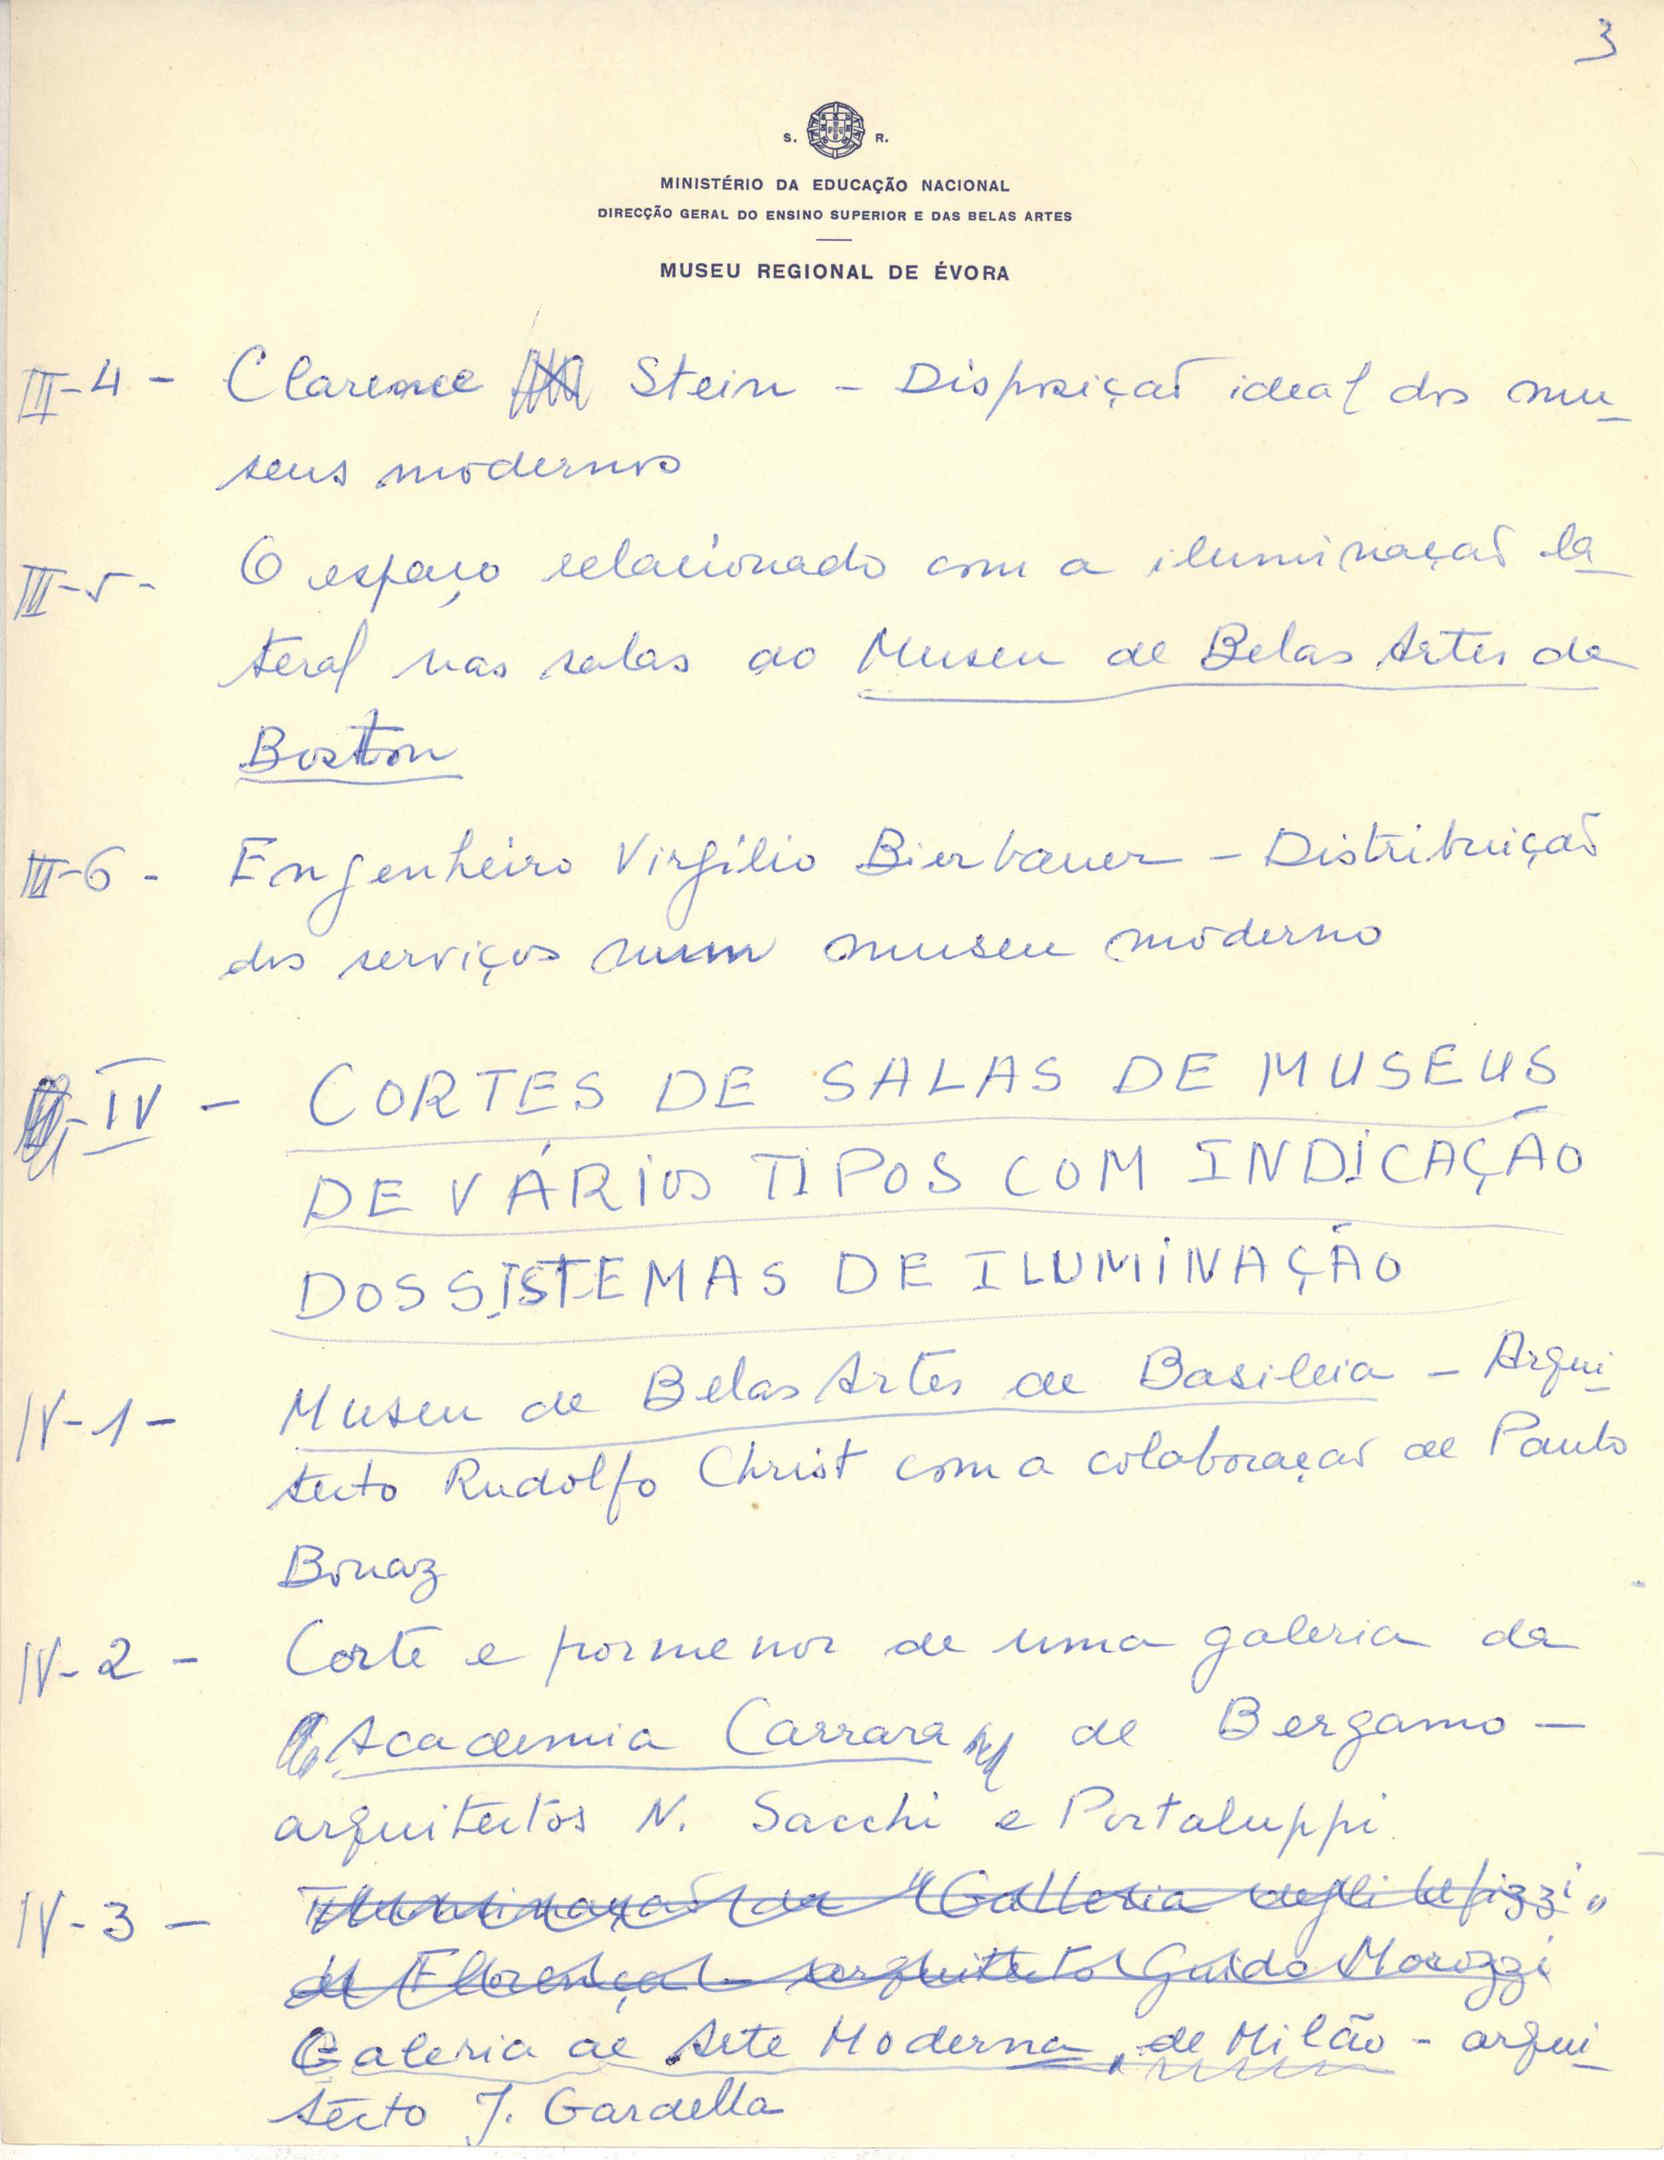 3
S. R.
MINISTÉRIO DA EDUCAÇÃO NACIONAL
DIRECÇÃO GERAL DO ENSINO SUPERIOR E DAS BELAS ARTES
MUSEU REGIONAL DE ÉVORA
III-4 - Clarence Stein - Disposição ideal dos mu-
seus modernos
III-5- O espaço relacionado com a iluminação la-
teral nas salas do Museu de Belas Artes de
Boston
III-6 - Engenheiro Virgílio Bierbauer - Distribuição
dos serviços num museu moderno
IV - CORTES DE SALAS DE MUSEUS
DE VÁRIOS TIPOS COM INDICAÇÃO
DOS SISTEMAS DE ILUMINAÇÃO
IV-1- Museu de Belas Artes de Basileia - Arqui-
tecto Rudolfo Christ com a colaboração de Paulo
Bonaz
IV-2 - Corte e pormenor de uma galeria da
Academia Carrara de Bergamo -
arquitectos N. Sacchi e Portaluppi
IV-3 - Iluminação da "Galleria degli Uffizzi"
de Florença - arquitecto Guido Morozzi
Galeria de Arte Moderna, de Milão - arqui-
tecto J. Gardella